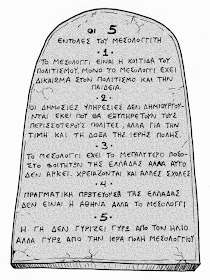 ΟΙ 5
ΕΝΤΟΛΕΣ ΤΟΥ ΜΕΣΟΛΟΓΓΙΤΗ
·1·
ΤΟ ΜΕΣΟΛΟΓΓΙ ΕΙΝΑΙ Η ΚΟΙΤΙΔΑ ΤΟΥ
ΠΟΛΙΤΙΣΜΟΥ. ΜΟΝΟ ΤΟ ΜΕΣΟΛΟΓΓΙ ΕΧΕΙ
ΔΙΚΑΙΩΜΑ ΣΤΟΝ ΠΟΛΙΤΙΣΜΟ ΚΑΙ ΤΗΝ
ΠΑΙΔΕΙΑ.
·2·
ΟΙ ΔΗΜΟΣΙΕΣ ΥΠΗΡΕΣΙΕΣ ΔΕΝ ΔΗΜΙΟΥΡΓΟΥ-
ΝΤΑΙ ΕΚΕΙ ΠΟΥ ΘΑ ΕΞΥΠΗΡΕΤΟΥΝ ΤΟΥΣ
ΠΕΡΙΣΣΟΤΕΡΟΥΣ ΠΟΛΙΤΕΣ, ΑΛΛΑ ΓΙΑ ΤΗΝ
ΤΙΜΗ ΚΑΙ ΤΗ ΔΟΞΑ ΤΗΣ ΙΕΡΗΣ ΠΟΛΗΣ.
·3·
ΤΟ ΜΕΣΟΛΟΓΓΙ ΕΧΕΙ ΤΟ ΜΕΓΑΛΥΤΕΡΟ ΠΟΣΟ-
ΣΤΟ ΦΟΙΤΗΤΩΝ ΤΗΣ ΕΛΛΑΔΑΣ ΑΛΛΑ ΑΥΤΟ
ΔΕΝ ΑΡΚΕΙ. ΧΡΕΙΑΖΟΝΤΑΙ ΚΑΙ ΑΛΛΕΣ ΣΧΟΛΕΣ
·4·
ΠΡΑΓΜΑΤΙΚΗ ΠΡΩΤΕΥΟΥΣΑ ΤΗΣ ΕΛΛΑΔΑΣ
ΔΕΝ ΕΙΝΑΙ Η ΑΘΗΝΑ ΑΛΛΑ ΤΟ ΜΕΣΟΛΟΓΓΙ
·5·
Η ΓΗ ΔΕΝ ΓΥΡΙΖΕΙ ΓΥΡΩ ΑΠΟ ΤΟΝ ΗΛΙΟ
ΑΛΛΑ ΓΥΡΩ ΑΠΟ ΤΗΝ ΙΕΡΑ ΠΟΛΗ ΜΕΣΟΛΟΓΓΙΟΥ